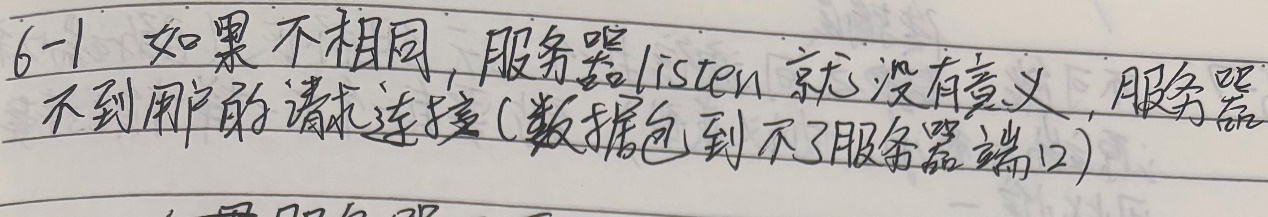 6-1 如果不相同，服务器listen就没有意义，服务器
不到用户的请求连接（数据包到不了服务器端口）